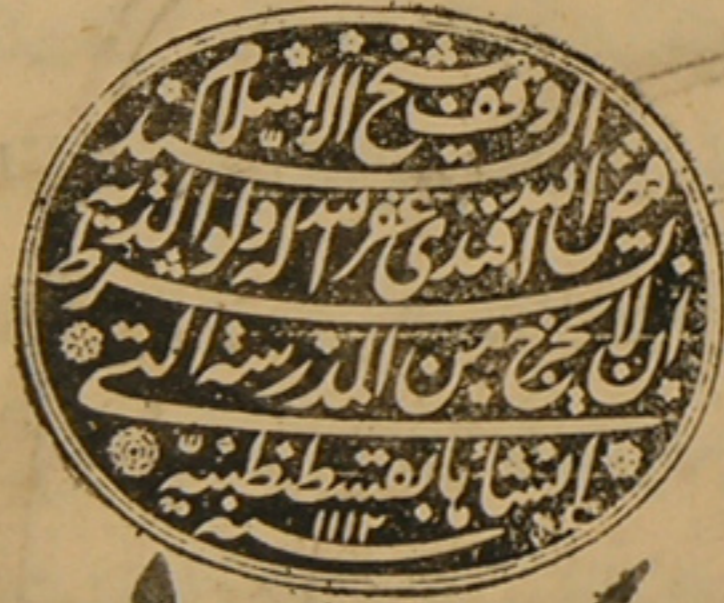 وقف شيخ الإسلام السيد
فيض الله افندى غفر الله له ولوالديه
بشرط ان لا يخرج من المدرسة التي
انشأها بقسطنطنيه
سنه ١١١٢